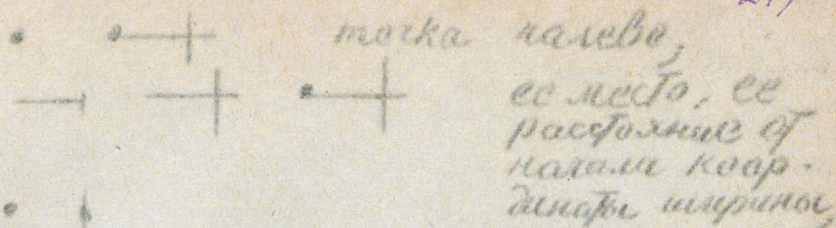 точка налево,
ее место, ее
расстояние от
начала коор-
динаты ширины,